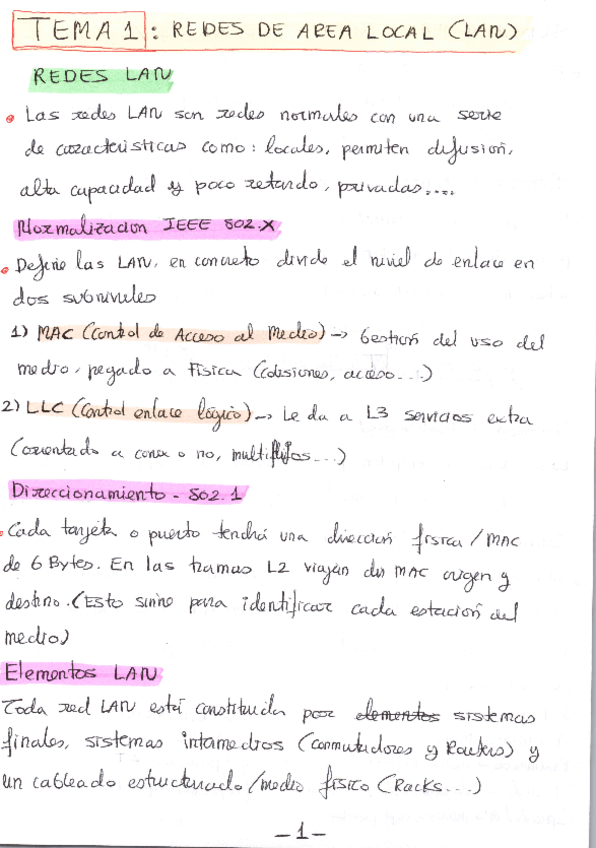 TEMA 1: REDES DE AREA LOCAL (LAN)
REDES LAN
Las redes LAN son redes normales con una serie
de caracteristicas como: locales, permiten difusión,
alta capacidad y poco retardo, privadas....
Normalizacion IEEE 802.X
Define las LAN, en concreto divide el nivel de enlace en
dos subniveles
1) MAC (Control de Acceso al Medio) -> Gestión del uso del
medio, pegado a Física (colisiones, acceso...)
2) LLC (Control enlace lógico) -> Le da a L3 servicios extra
(orientado a conex o no, multiflujos...)
Direccionamiento - 802.1
Cada tarjeta o puerto tendrá una dirección física / MAC
de 6 Bytes. En las tramas L2 viajan dir MAC origen y
destino. (Esto sirve para identificar cada estación del
medio)
Elementos LAN
Toda red LAN está constituida por elementos sistemas
finales, sistemas intermedios (conmutadores y Routers) y
un cableado estructurado / medio físico (Racks...)
-1-